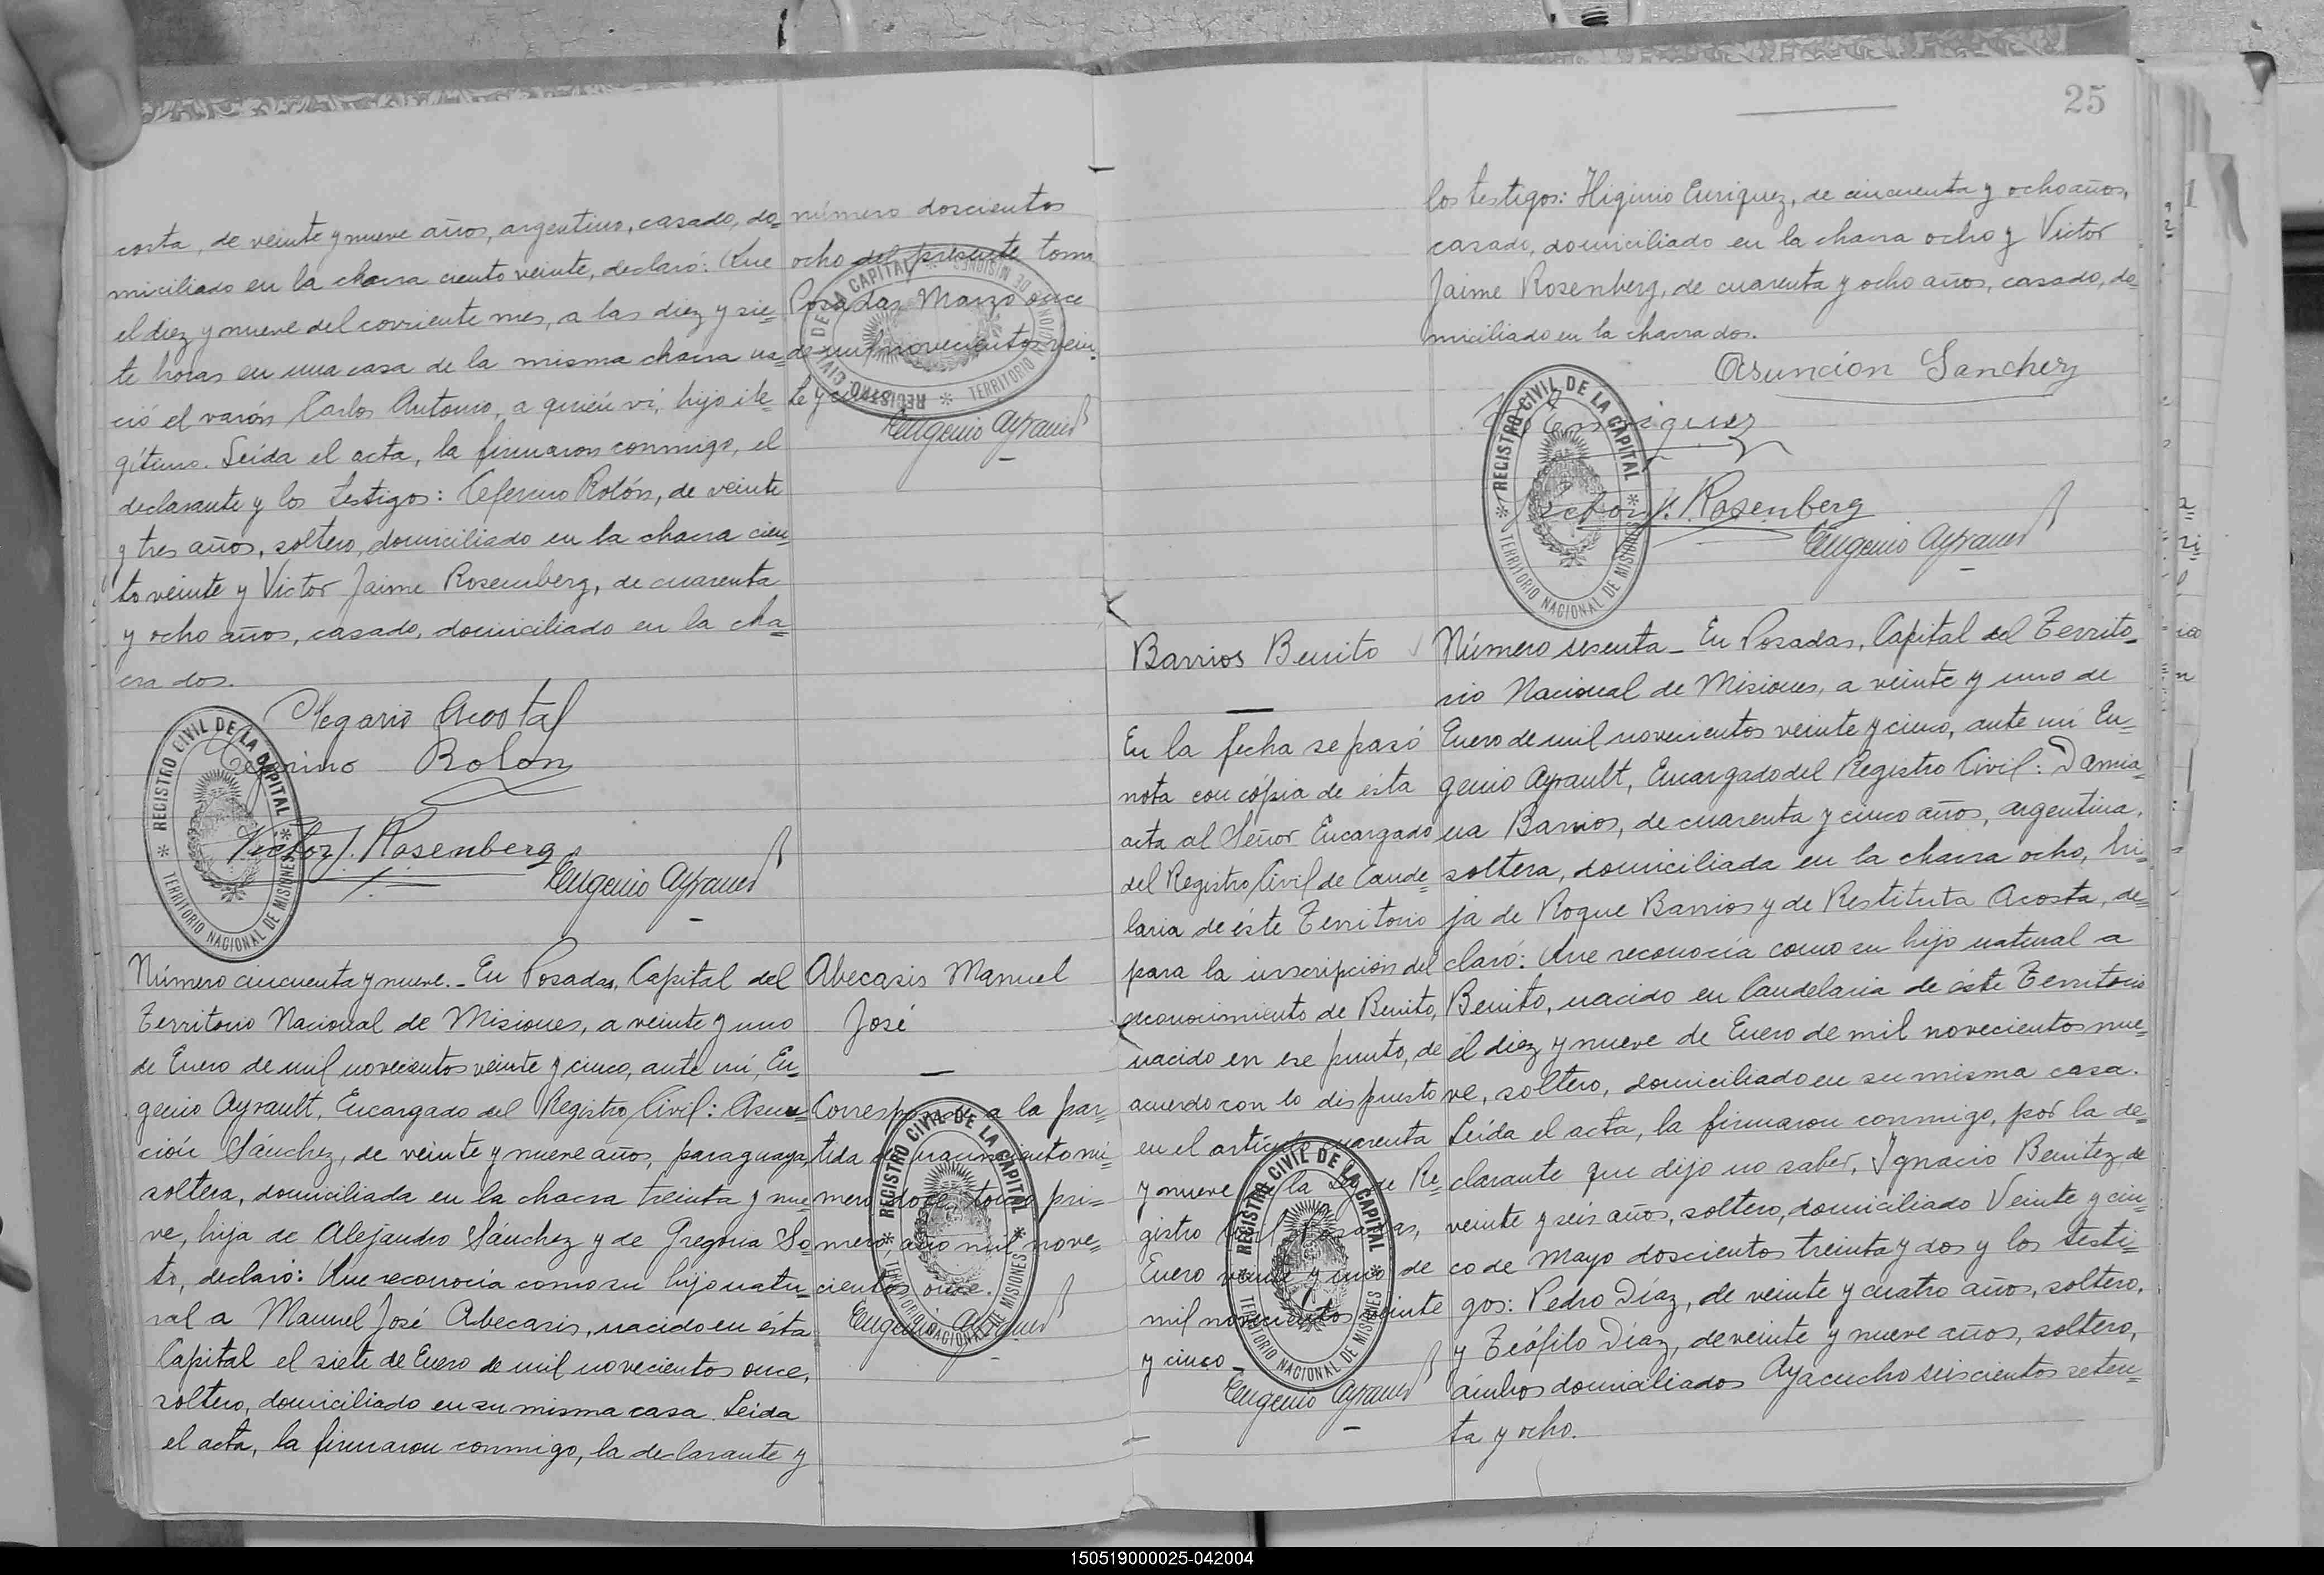 costa, de veinte y nueve años, argentino, casado, do=
miciliado en la chacra ciento veinte, declaró: Que
el diez y nueve del corriente mes, a las diez y sie=
te horas en una casa de la misma chacra na=
ció el varón Carlos Antonio, a quién ví, hijo ile=
gítimo. Leída el acta, la firmaron conmigo, el
declarante y los testigos: Ceferino Rolón, de veinte
y tres años, soltero, domiciliado en la chacra cien=
to veinte y Victor Jaime Rosemberg, de cuarenta
y ocho años, casado, domiciliado en la cha=
cra dos.
Olegario Acosta
Ceferino Rolon
Victor J. Rosemberg
Eugenio Ayrault
REGISTRO CIVIL DE LA CAPITAL * TERRITORIO NACIONAL DE MISIONES *
número doscientos
ocho del presente tomo
Posadas, Marzo once
de mil novecientos vein=
te y
Eugenio Ayrault
REGISTRO CIVIL DE LA CAPITAL * TERRITORIO NACIONAL DE MISIONES *
Número cincuenta y nueve.- En Posadas, Capital del
Territorio Nacional de Misiones, a veinte y uno
de Enero de mil novecientos veinte y cinco, ante mí, Eu=
genio Ayrault, Encargado del Registro Civil: Asun=
ción Sánchez, de veinte y nueve años, paraguaya,
soltera, domiciliada en la chacra treinta y nue=
ve, hija de Alejandro Sánchez y de Gregoria So=
to, declaró: Que reconocía como su hijo natu=
ral a Manuel José Abecasis, nacido en ésta
Capital el siete de Enero de mil novecientos once,
soltero, domiciliado en su misma casa. Leida
el acta, la firmaron conmigo, la declarante y
Abecasis Manuel
José
Corresponde a la par=
tida de nacimiento nú=
mero doce, tomo pri=
mero, año mil nove=
cientos once.
Eugenio Ayrault
REGISTRO CIVIL DE LA CAPITAL * TERRITORIO NACIONAL DE MISIONES *
25
los testigos: Higinio Enriquez, de cincuenta y ocho años,
casado, domiciliado en la chacra ocho y Victor
Jaime Rosenberg, de cuarenta y ocho años, casado, do=
miciliado en la chacra dos.
Asuncion Sanchez
Enriquez
Victor J. Rosenberg
Eugenio Ayrault
REGISTRO CIVIL DE LA CAPITAL * TERRITORIO NACIONAL DE MISIONES *
Barrios Benito
En la fecha se pasó
nota con cópia de ésta
acta al Señor Encargado
del Registro Civil de Cande=
laria de éste Territorio
para la inscripción del
reconocimiento de Benito,
nacido en ese punto, de
acuerdo con lo dispuesto
en el artículo cuarenta
y nueve de la Ley de Re=
gistro Civil Posadas,
Enero veinte y uno de
mil novecientos veinte
y cinco-
Eugenio Ayrault
REGISTRO CIVIL DE LA CAPITAL * TERRITORIO NACIONAL DE MISIONES *
Número sesenta- En Posadas, Capital del Territo=
rio Nacional de Misiones, a veinte y uno de
Enero de mil novecientos veinte y cinco, ante mí Eu=
genio Ayrault, Encargado del Registro Civil: Damia=
na Barrios, de cuarenta y cinco años, argentina,
soltera, domiciliada en la chacra ocho, hi=
ja de Roque Barrios y de Restituta Acosta, de=
claró: Que reconocía como su hijo natural a
Benito, nacido en Candelaria de éste Territorio
el diez y nueve de Enero de mil novecientos nue=
ve, soltero, domiciliado en su misma casa.
Leída el acta, la firmaron conmigo, por la de=
clarante que dijo no saber, Ignacio Benitez, de
veinte y seis años, soltero, domiciliado Veinte y cin=
co de Mayo doscientos treinta y dos y los testi=
gos: Pedro Díaz, de veinte y cuatro años, soltero,
y Teófilo Díaz, de veinte y nueve años, soltero,
ámbos domiciliados Ayacucho seiscientos seten=
ta y ocho.
150519000025-042004